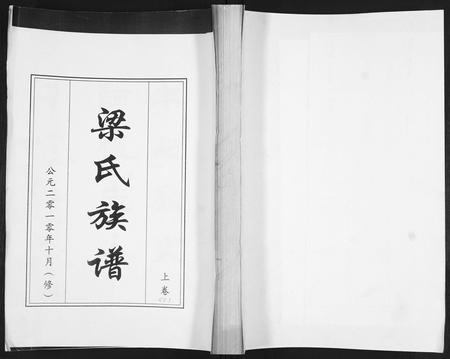 上卷
梁氏族谱
公元二零一零年十月(修)